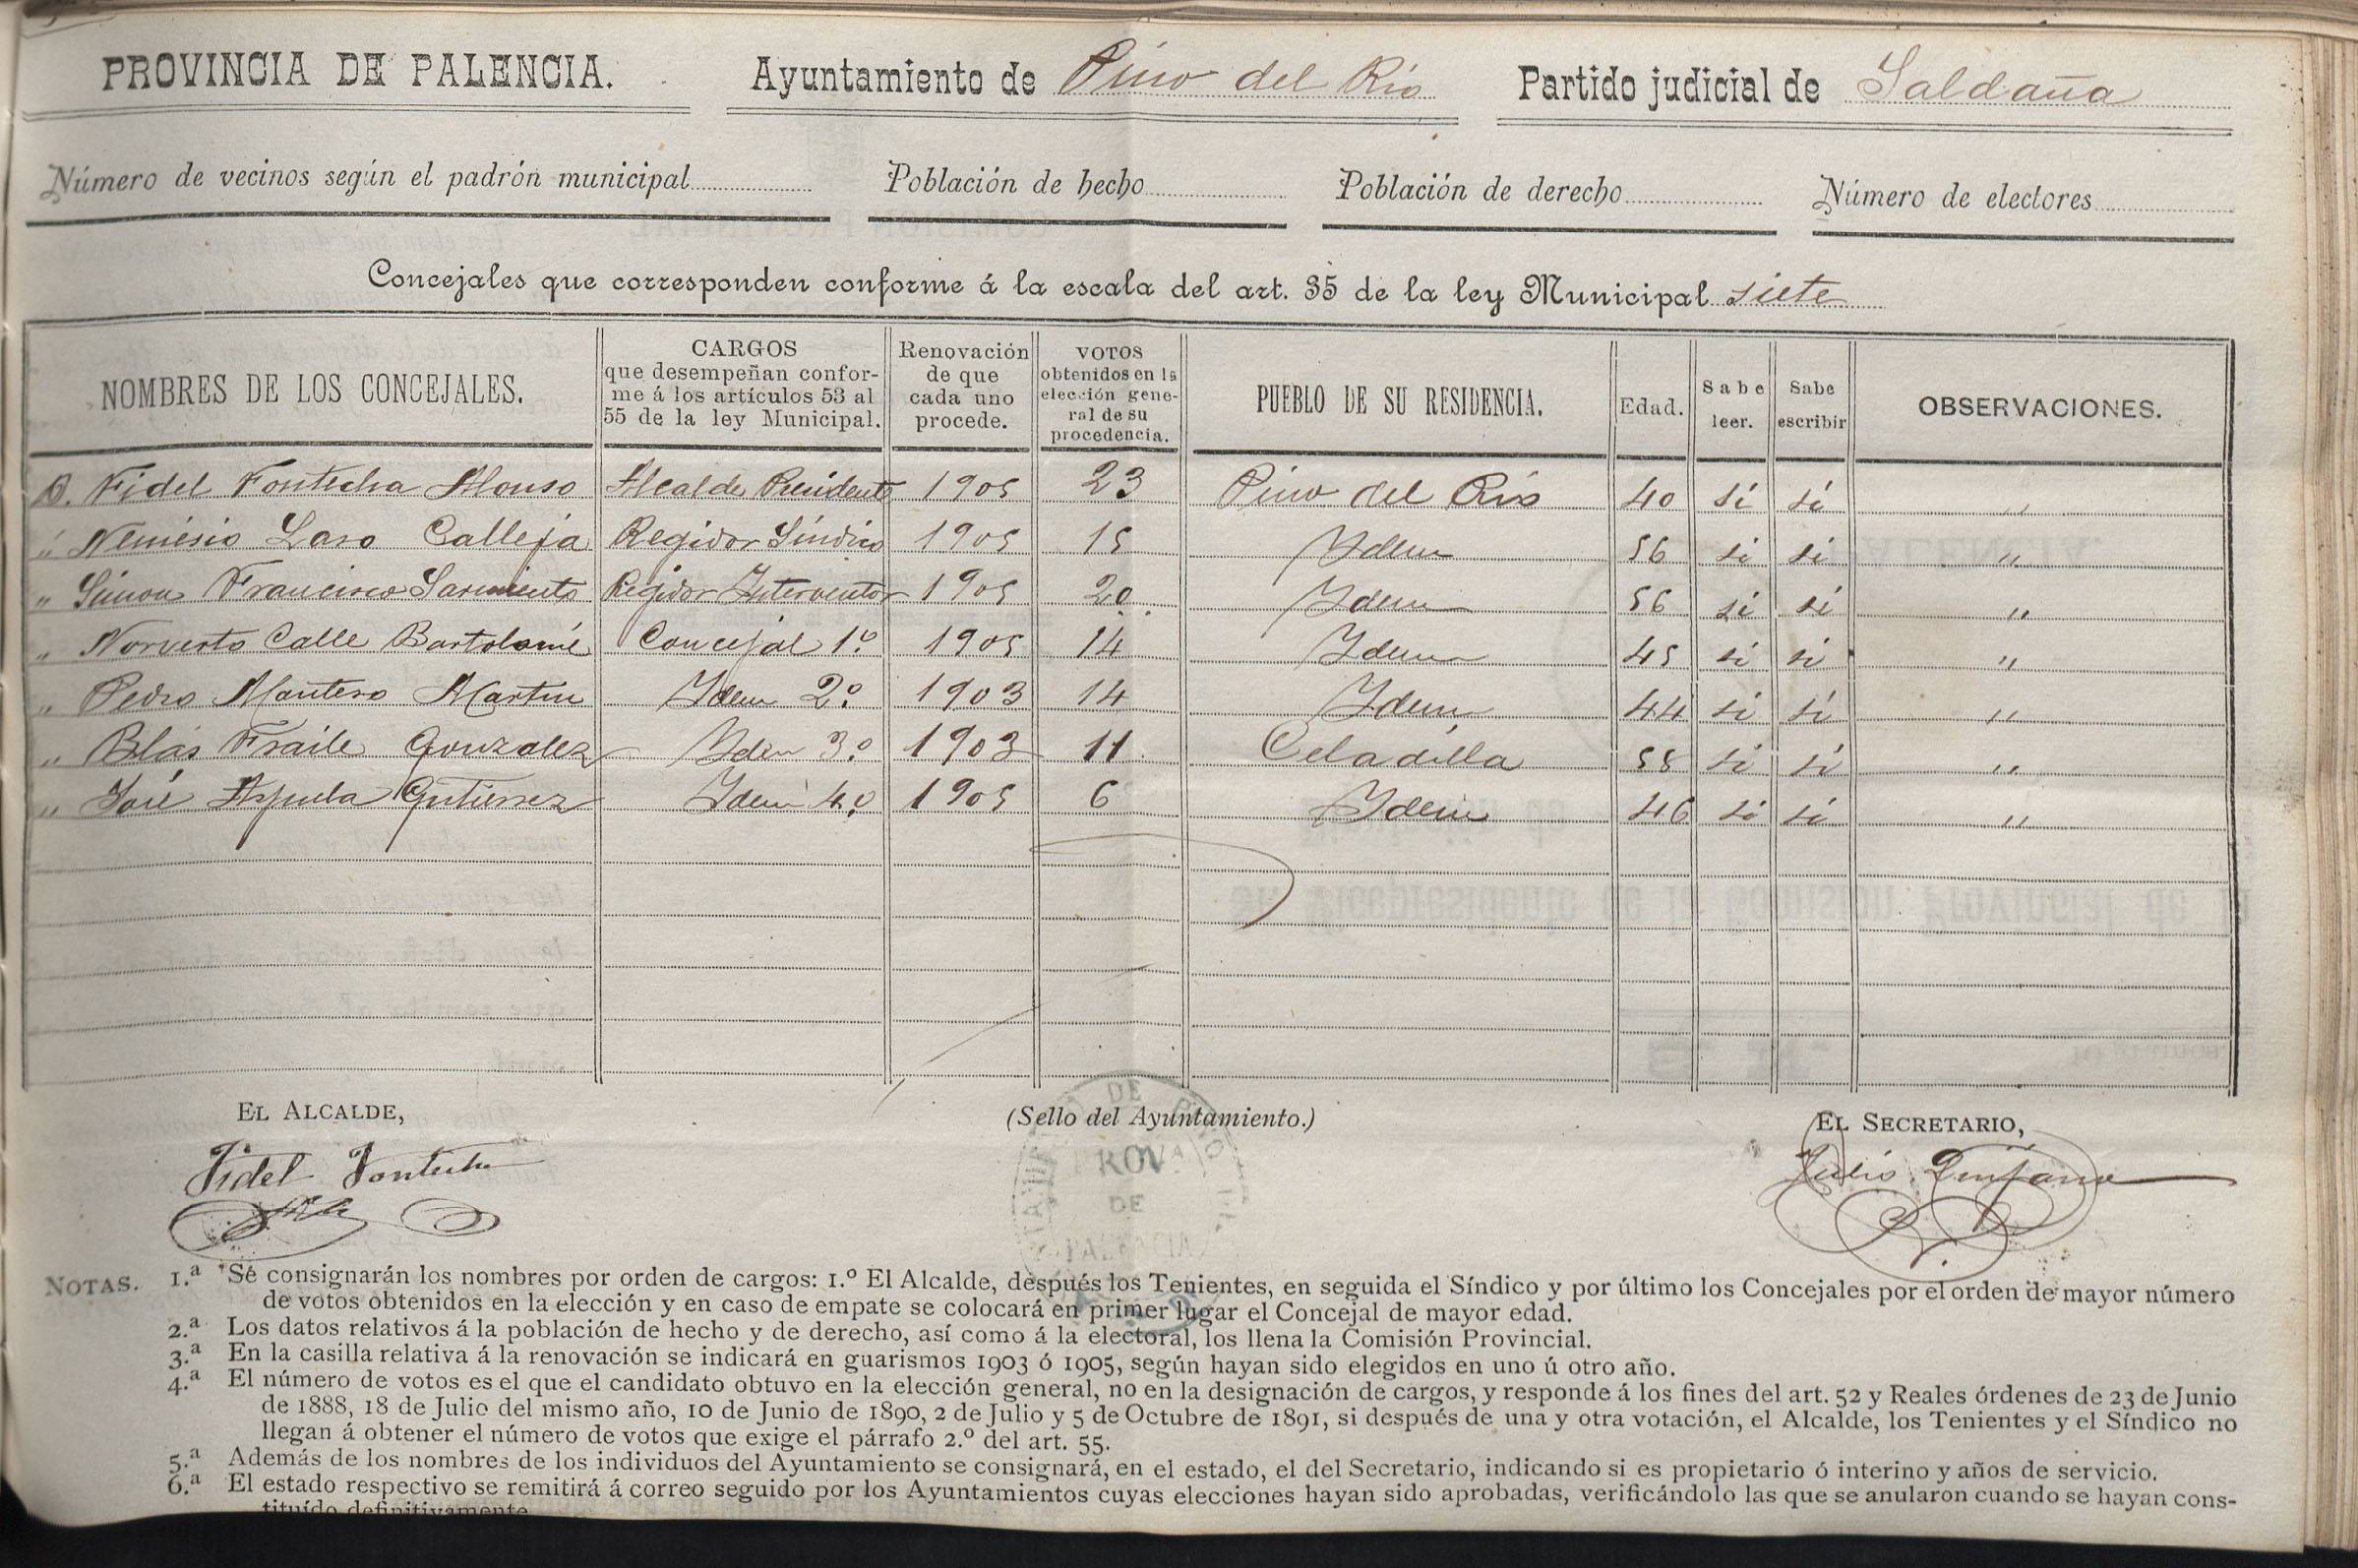 PROVINCIA DE PALENCIA. Ayuntamiento de Pino del Rio Partido judicial de Saldaña
Número de vecinos según el padrón municipal Población de hecho Población de derecho Número de electores
Concejales que corresponden conforme á la escala del art. 35 de la ley Municipal siete
NOMBRES DE LOS CONCEJALES. CARGOS que desempeñan conforme á los artículos 53 al 55 de la ley Municipal. Renovación de que cada uno procede. VOTOS obtenidos en la elección general de su procedencia. PUEBLO DE SU RESIDENCIA. Edad. Sabe leer. Sabe escribir OBSERVACIONES.
D. Fidel Fontecha Alonso Alcalde Presidente 1905 23 Pino del Rio 40 si si "
" Nemesio Laso Calleja Regidor Síndico 1905 15 Ydem 56 si si "
" Simon Francisco Sarmiento Regidor Interventor 1905 20 Ydem 56 si si "
" Norverto Calle Bartolomé Concejal 1.º 1905 14 Ydem 45 si si "
" Pedro Montero Martin Ydem 2.º 1903 14 Ydem 44 si si "
" Blas Fraile Gonzalez Ydem 3.º 1903 11 Celadilla 58 si si "
" José Gutierrez Ydem 4.º 1905 6 Ydem 46 si si "
EL ALCALDE, (Sello del Ayuntamiento.) EL SECRETARIO,
Fidel Fontecha Julio Quijano
PROV.ª
DE
PALENCIA
NOTAS. 1.ª Se consignarán los nombres por orden de cargos: 1.º El Alcalde, después los Tenientes, en seguida el Síndico y por último los Concejales por el orden de mayor número
de votos obtenidos en la elección y en caso de empate se colocará en primer lugar el Concejal de mayor edad.
2.ª Los datos relativos á la población de hecho y de derecho, así como á la electoral, los llena la Comisión Provincial.
3.ª En la casilla relativa á la renovación se indicará en guarismos 1903 ó 1905, según hayan sido elegidos en uno ú otro año.
4.ª El número de votos es el que el candidato obtuvo en la elección general, no en la designación de cargos, y responde á los fines del art. 52 y Reales órdenes de 23 de Junio
de 1888, 18 de Julio del mismo año, 10 de Junio de 1890, 2 de Julio y 5 de Octubre de 1891, si después de una y otra votación, el Alcalde, los Tenientes y el Síndico no
llegan á obtener el número de votos que exige el párrafo 2.º del art. 55.
5.ª Además de los nombres de los individuos del Ayuntamiento se consignará, en el estado, el del Secretario, indicando si es propietario ó interino y años de servicio.
6.ª El estado respectivo se remitirá á correo seguido por los Ayuntamientos cuyas elecciones hayan sido aprobadas, verificándolo las que se anularon cuando se hayan cons-
tituído definitivamente